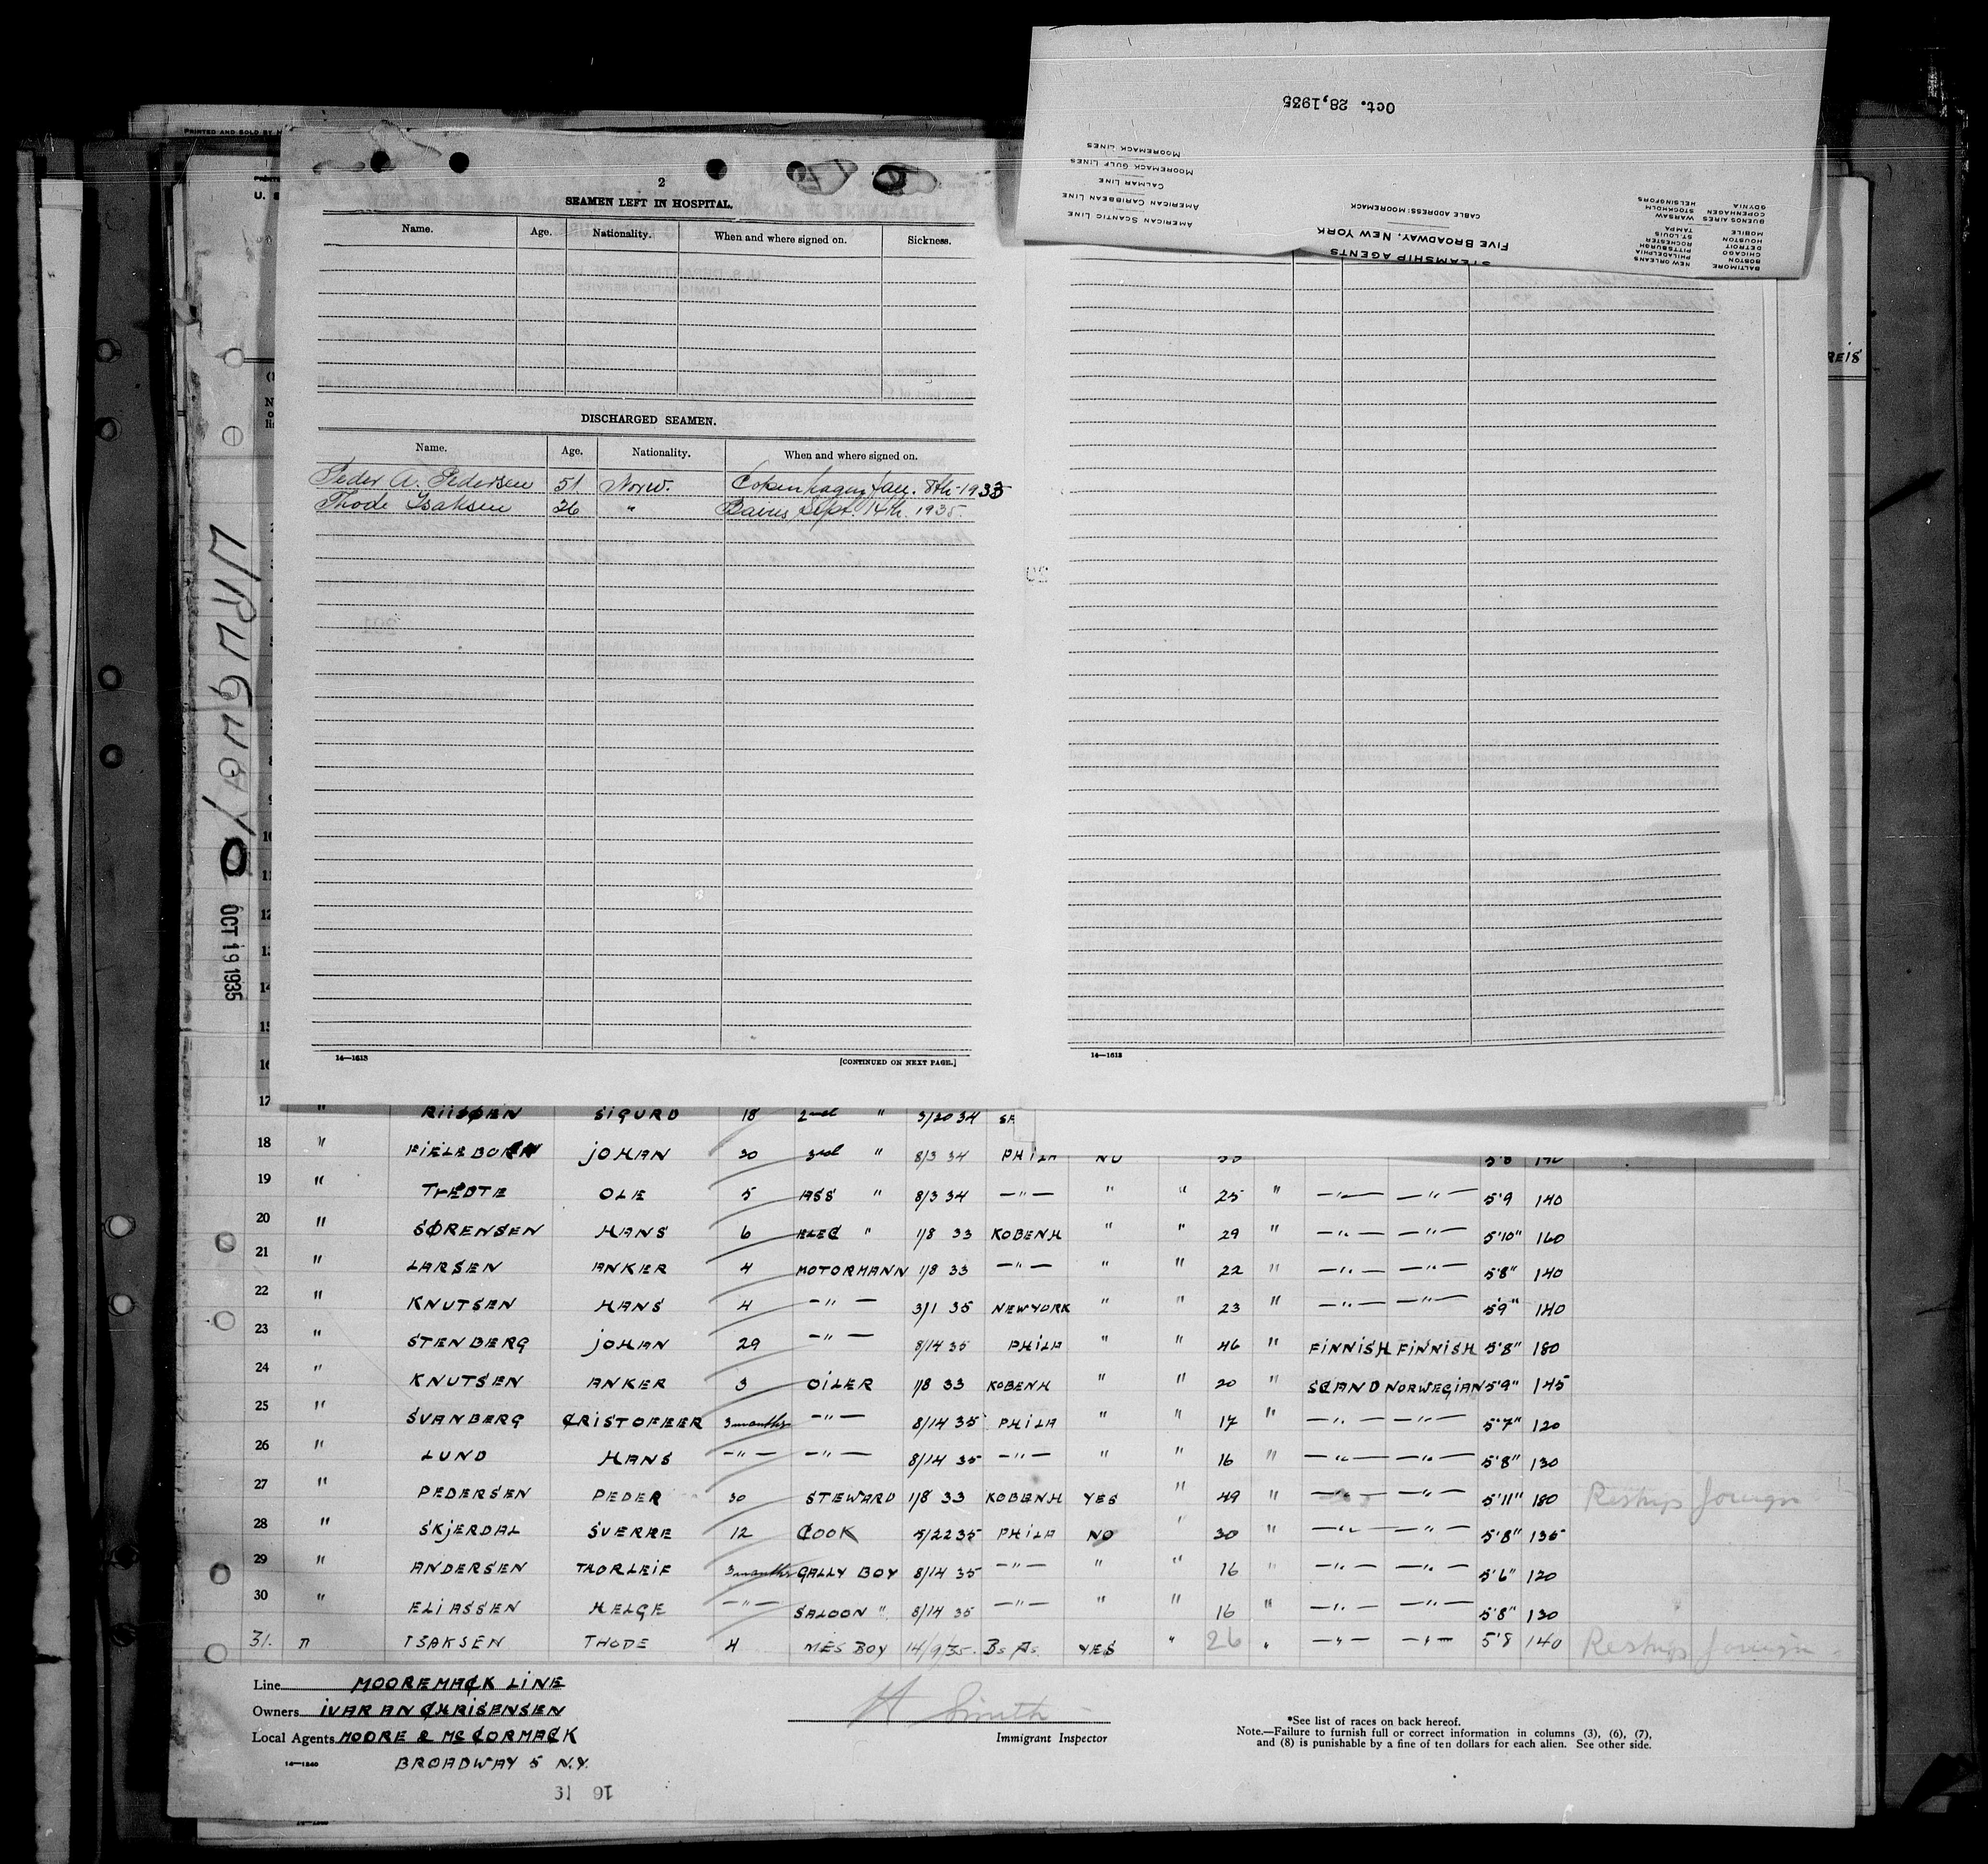 Oct. 28, 1935
MOOREMACK LINES
MOOREMACK GULF LINES
CALMAR LINE
AMERICAN CARIBBEAN LINE
AMERICAN SCANTIC LINE
CABLE ADDRESS: MOOREMACK
FIVE BROADWAY, NEW YORK
STEAMSHIP AGENTS
GYNIA
COPENHAGEN HELSINGFORS
BUENOS AIRES STOCKHOLM
WARSAW
MOBILE TAMPA
HOUSTON ST. LOUIS
DETROIT ROCHESTER
CHICAGO PITTSBURGH
BOSTON PHILADELPHIA
BALTIMORE NEW ORLEANS
PRINTED AND SOLD BY
U. S
2
SEAMEN LEFT IN HOSPITAL.
Name. Age. Nationality. When and where signed on. Sickness.
DISCHARGED SEAMEN.
Name. Age. Nationality. When and where signed on.
Peder A. Pedersen 51 Norw. Copenhagen Jan. 8th-1933
Thode Isaksen 26 " Baires Sept. 14th. 1935.
14—1613 [CONTINUED ON NEXT PAGE.]
14—1613
URUGUAY
OCT 19 1935
17 " RIISØEN SIGURD 18 2nd " 3/20 34
18 " JOHAN 30 3rd " 8/3 34 PHILA NO
19 " TVEDTE OLE 5 ASS " 8/3 34 —"— " " 25 " —"— —"— 5'9 140
20 " SØRENSEN HANS 6 ELEC " 1/8 33 KOBENH " " 29 " —"— —"— 5'10" 160
21 " LARSEN ANKER 4 MOTORMANN 1/8 33 —"— " " 22 " —"— —"— 5'8" 140
22 " KNUTSEN HANS 4 —"— 3/1 35 NEWYORK " " 23 " —"— —"— 5'9" 140
23 " STENBERG JOHAN 29 —"— 8/14 35 PHILA " " 46 " FINNISH FINNISH 5'8" 180
24 " KNUTSEN ANKER 3 OILER 1/8 33 KOBENH " " 20 " SCAND NORWEGIAN 5'9" 145
25 " SVANBERG CRISTOFEER 3 months —"— 8/14 35 PHILA " " 17 " —"— —"— 5'7" 120
26 " LUND HANS —"— —"— 8/14 35 —"— " " 16 " —"— —"— 5'8" 130
27 " PEDERSEN PEDER 30 STEWARD 1/8 33 KOBENH YES " 49 " —"— —"— 5'11" 180 Reships foreign
28 " SKJERDAL SVERRE 12 COOK 5/22 35 PHILA NO " 30 " —"— —"— 5'8" 135
29 " ANDERSEN THORLEIF 3 months GALLY BOY 8/14 35 —"— " " 16 " —"— —"— 5'6" 120
30 " ELIASSEN HELGE —"— SALOON " 8/14 35 —"— " " 16 " —"— —"— 5'8" 130
31. " ISAKSEN THODE 4 MES BOY 14/9/35. Bs As. YES " 26 " —"— —"— 5'8 140 Reships foreign
Line MOOREMACK LINE
Owners IVAR AN CHRISENSEN
Local Agents MOORE & Mc CORMACK
BROADWAY 5 N.Y.
14—1240
H Smith
Immigrant Inspector
*See list of races on back hereof.
Note.—Failure to furnish full or correct information in columns (3), (6), (7),
and (8) is punishable by a fine of ten dollars for each alien. See other side.